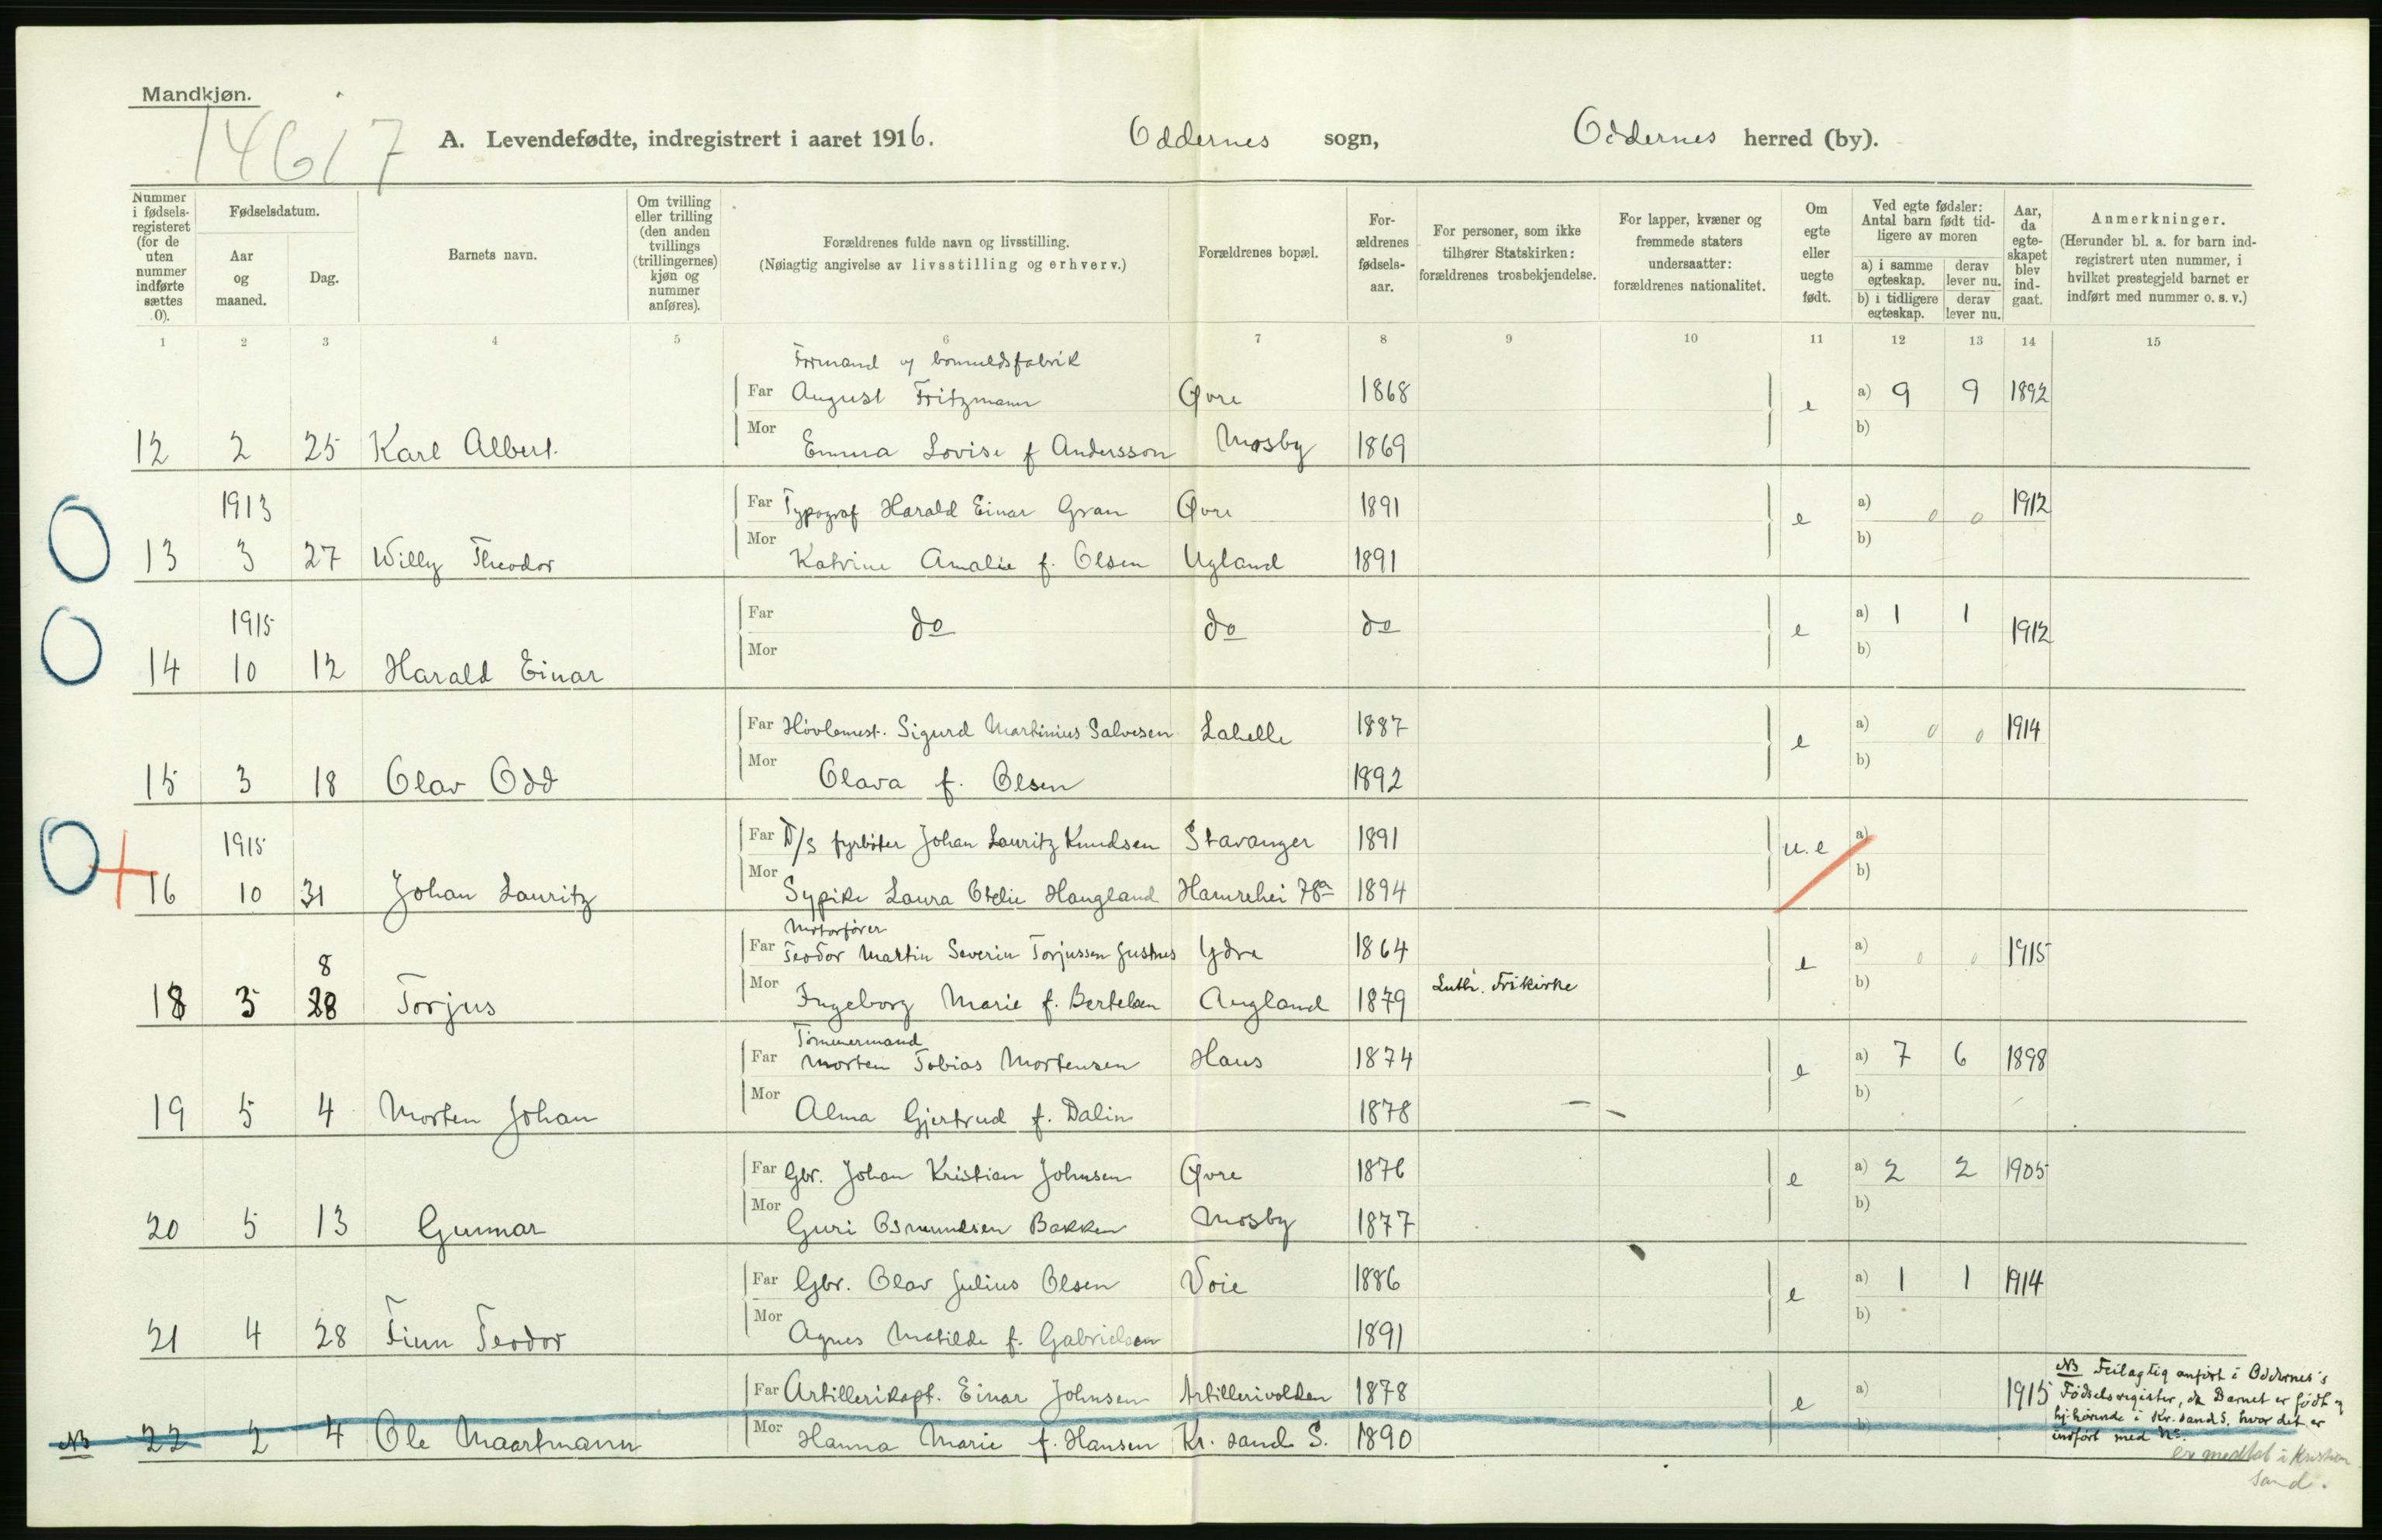 Mandkjøn.
14617
A. Levendefødte, indregistrert i aaret 1916. Oddernes sogn, Oddernes herred (by).
Nummer i fødsels-registeret (for de uten nummer indførte sættes 0).
Fødselsdatum.
Aar og maaned.
Dag.
Barnets navn.
Om tvilling eller trilling (den anden tvillings (trillingernes) kjøn og nummer anføres).
Forældrenes fulde navn og livsstilling.
(Nøiagtig angivelse av livsstilling og erhverv.)
Forældrenes bopæl.
For-ældrenes fødsels-aar.
For personer, som ikke tilhører Statskirken: forældrenes trosbekjendelse.
For lapper, kvæner og fremmede staters undersaatter: forældrenes nationalitet.
Om egte eller uegte født.
Ved egte fødsler: Antal barn født tid-ligere av moren
a) i samme egteskap. derav lever nu.
b) i tidligere egteskap. derav lever nu.
Aar, da egte-skapet blev ind-gaat.
Anmerkninger.
(Herunder bl. a. for barn ind-registrert uten nummer, i hvilket prestegjeld barnet er indført med nummer o. s. v.)
1 2 3 4 5 6 7 8 9 10 11 12 13 14 15
Formand v bomuldsfabrik
Far August Fritzmann Øvre 1868 e a) 9 9 1892
12 2 25 Karl Albert. Mor Emma Lovise f Andersson Mosby 1869 b)
1913 Far Typograf Harald Einar Gran Øvre 1891 e a) 0 0 1912
13 3 27 Willy Theodor Mor Katrine Amalie f. Olsen Ugland 1891 b)
1915 Far do do do e a) 1 1 1912
14 10 12 Harald Einar Mor b)
Far Høvlemest. Sigurd Martinius Salvesen Lahelle 1887 e a) 0 0 1914
15 3 18 Olav Odd Mor Olava f. Olsen 1892 b)
1915 Far D/S fyrbøter Johan Lauritz Knudsen Stavanger 1891 u.e a)
16 10 31 Johan Lauritz Mor Sypike Laura Otelie Haugland Hamrehei 78a 1894 b)
Motorfører
8 Far Teodor Martin Severin Torjussen Justnes Ydre 1864 e a) 0 0 1915
18 3 28 Torjus Mor Ingeborg Marie f. Bertelsen Augland 1879 Luth. Frikirke b)
Tømmermand
Far Morten Tobias Mortensen Haus 1874 e a) 7 6 1898
19 5 4 Morten Johan Mor Alma Gjertrud f. Dalin 1878 b)
Far Gbr. Johan Kristian Johnsen Øvre 1876 e a) 2 2 1905
20 5 13 Gunnar Mor Guri Osmundsen Bakken Mosby 1877 b)
Far Gbr. Olav Julius Olsen Voie 1886 e a) 1 1 1914
21 4 28 Finn Teodor Mor Agnes Matilde f. Gabrielsen 1891 b)
Far Artillerikapt. Einar Johnsen Artillerivolden 1878 e a) 1915
NB 22 2 4 Ole Maartmann Mor Hanna Marie f. Hansen Kr. sand S. 1890 b)
NB Feilagtig anført i Oddernes's
Fødselsregister, da Barnet er født og
hjhørende i Kr.sand S. hvor det er
indført med No.
er medtat i Kristian
sand.